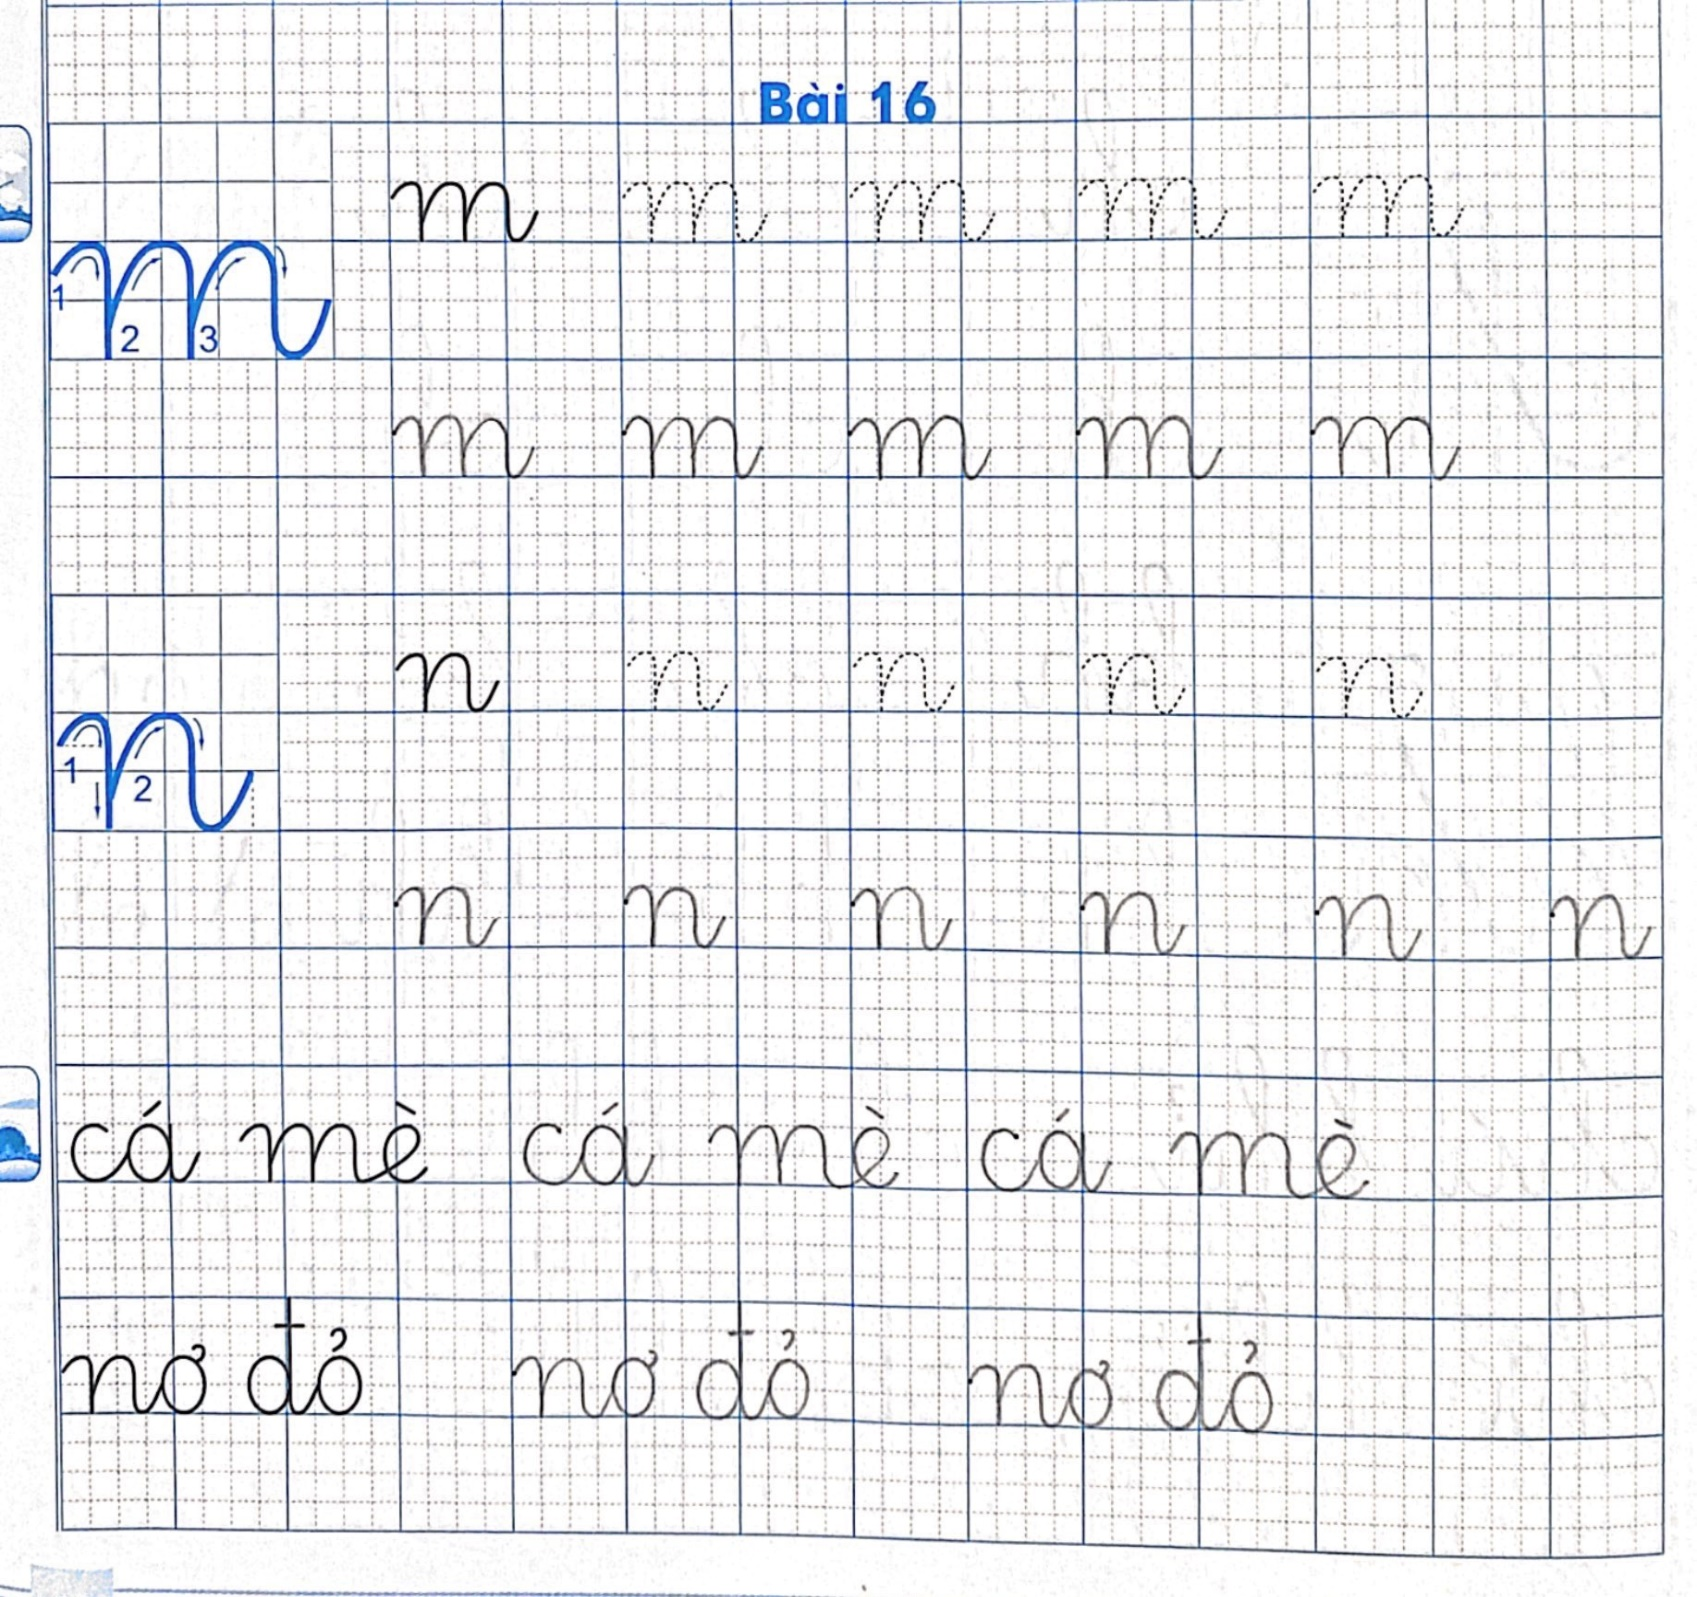 Bài 16
m m m m m
1 2 3
m m m m m
n n n n n
1 2
n n n n n n
cá mè cá mè cá mè
nơ đỏ nơ đỏ nơ đỏ